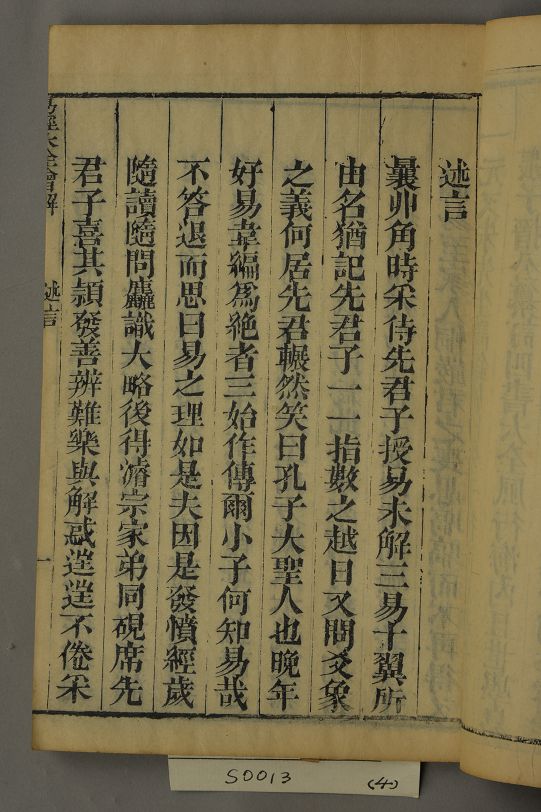 述言
曩丱角時采侍先君子授易未解三易十翼所
由名猶記先君子一一指數之越日又問爻象
之義何居先君囅然笑曰孔子大聖人也晚年
好易韋編爲絶者三始作傳爾小子何知易哉
不答退而思曰易之理如是夫因是發憤經歲
隨讀隨問麤識大略後得濟宗家弟同硯席先
君子喜其頴發善辨難樂與解惑逹逹不倦采
易經大全會解
述言
一
S0013
(4)